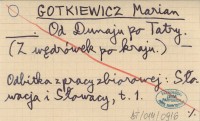 GOTKIEWICZ Marian
——. Od Dunaju po Tatry.
(Z wędrówek po kraju.) —
Odbitka z pracy zbiorowej: Sło-
wacja i Słowacy, t. 1.